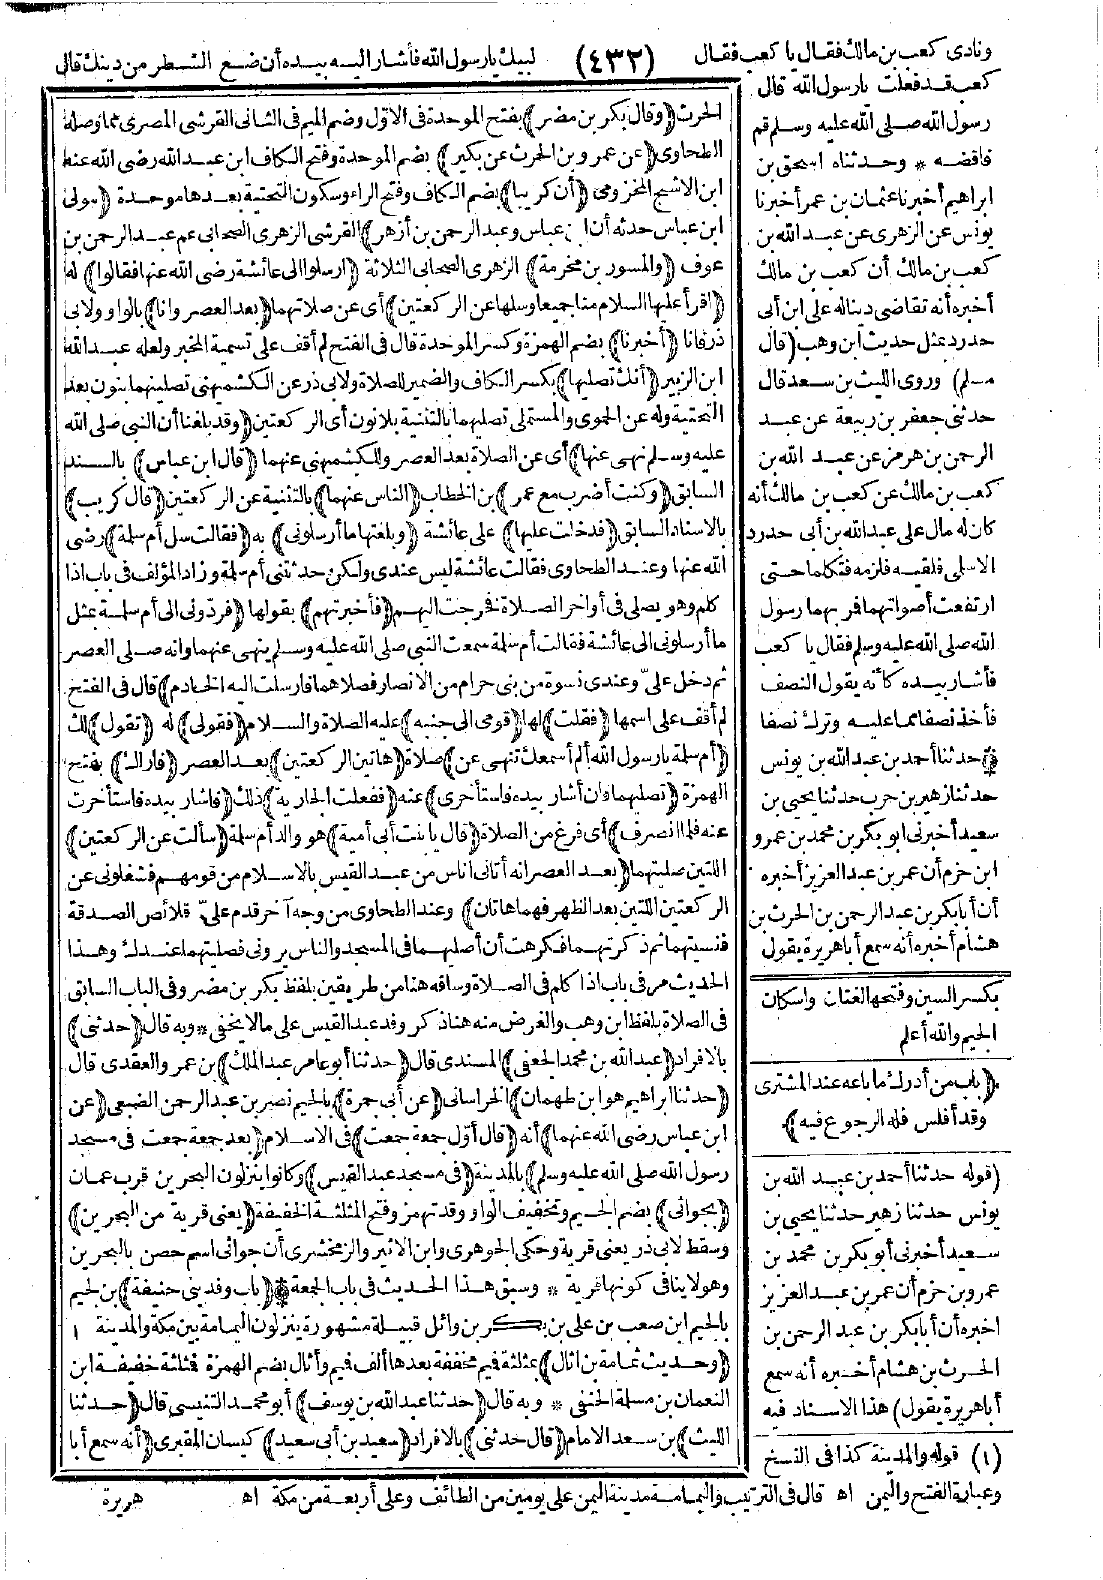 ونادى كعب بن مالك فقال يا كعب فقال (٤٣٢) لبيك يا رسول الله فأشار اليه بيده أن ضع الشطر من دينك قال
كعب قد فعلت يا رسول الله قال
رسول الله صلى الله عليه وسلم قم
فاقضه * وحدثناه اسحق بن
ابراهيم أخبرنا عثمان بن عمر أخبرنا
يونس عن الزهرى عن عبد الله بن
كعب بن مالك أن كعب بن مالك
أخبره أنه تقاضى دينا له على ابن أبى
حدرد بمثل حديث ابن وهب (قال
مسلم) وروى الليث بن سعد قال
حدثنى جعفر بن ربيعة عن عبد
الرحمن بن هرمز عن عبد الله بن
كعب بن مالك عن كعب بن مالك أنه
كان له مال على عبد الله بن أبى حدرد
الاسلمى فلقيه فلزمه فتكلما حتى
ارتفعت أصواتهما فمر بهما رسول
الله صلى الله عليه وسلم فقال يا كعب
فأشار بيده كأنه يقول النصف
فأخذ نصفا مما عليه وترك نصفا
حدثنا أحمد بن عبد الله بن يونس
حدثنا زهير بن حرب حدثنا يحيى بن
سعيد أخبرنى ابو بكر بن محمد بن عمرو
ابن حزم أن عمر بن عبد العزيز أخبره
أن أبا بكر بن عبد الرحمن بن الحرث بن
هشام أخبره أنه سمع أبا هريرة يقول
بكسر السين وفتحها لغتان واسكان
الجيم والله أعلم
(باب من أدرك ما باعه عند المشترى
وقد أفلس فله الرجوع فيه)
(قوله حدثنا أحمد بن عبيد الله بن
يونس حدثنا زهير حدثنا يحيى بن
سعيد أخبرنى أبو بكر بن محمد بن
عمرو بن حزم أن عمر بن عبد العزيز
اخبره أن أبا بكر بن عبد الرحمن بن
الحرث بن هشام أخبره أنه سمع
أبا هريرة يقول) هذا الاسناد فيه
الحرث (وقال بكر بن مضر) بفتح الموحدة فى الاوّل وضم الميم فى الثانى القرشى المصرى مما وصله
الطحاوى (عن عمرو بن الحرث عن بكير) بضم الموحدة وفتح الكاف ابن عبد الله رضى الله عنه
ابن الاشج المخزومى (أن كريبا) بضم الكاف وفتح الراء وسكون التحتية بعدها موحدة (مولى
ابن عباس حدثه أن ابن عباس وعبد الرحمن بن أزهر) القرشى الزهرى الصحابى عم عبد الرحمن بن
عوف (والمسور بن مخرمة) الزهرى الصحابى الثلاثة (ارسلوا الى عائشة رضى الله عنها فقالوا) له
(اقرأ عليها السلام منا جميعا وسلها عن الركعتين) أى عن صلاتهما (بعد العصر وانا) بالواو ولابى
ذر فانا (أخبرنا) بضم الهمزة وكسر الموحدة قال فى الفتح لم أقف على تسمية المخبر ولعله عبد الله
ابن الزبير (أنك تصليها) بكسر الكاف والضمير للصلاة ولابى ذر عن الكشميهنى تصلينهما بنون بعد
التحتية وله عن الحموى والمستملى تصليهما بالتثنية بلا نون أى الركعتين (وقد بلغنا أن النبى صلى الله
عليه وسلم نهى عنها) أى عن الصلاة بعد العصر وللكشميهنى عنهما (قال ابن عباس) بالسند
السابق (وكنت أضرب مع عمر) بن الخطاب (الناس عنهما) بالتثنية عن الركعتين (قال كريب)
بالاسناد السابق (فدخلت عليها) على عائشة (وبلغتها ما أرسلونى) به (فقالت سل أم سلمة) رضى
الله عنها وعند الطحاوى فقالت عائشة ليس عندى ولكن حدثتنى أم سلمة وزاد المؤلف فى باب اذا
كلم وهو يصلى فى أواخر الصلاة فخرجت اليهم (فأخبرتهم) بقولها (فردّونى الى أم سلمة بمثل
ما أرسلونى الى عائشة فقالت أم سلمة سمعت النبى صلى الله عليه وسلم ينهى عنهما وانه صلى العصر
ثم دخل علىّ وعندى نسوة من بنى حرام من الانصار فصلاهما فارسلت اليه الخادم) قال فى الفتح
لم أقف على اسمها (فقلت) لها (قومى الى جنبه) عليه الصلاة والسلام (فقولى) له (تقول) لك
(أم سلمة يا رسول الله ألم أسمعك تنهى عن) صلاة (هاتين الركعتين) بعد العصر (فأراك) بفتح
الهمزة (تصليهما وان أشار بيده فاستأخرى) عنه (ففعلت الجارية) ذلك (فاشار بيده فاستأخرت
عنه فلما انصرف) أى فرغ من الصلاة (قال يا بنت أبى أمية) هو والد أم سلمة (سألت عن الركعتين)
اللتين صليتهما (بعد العصر انه أتانى اناس من عبد القيس بالاسلام من قومهم فشغلونى عن
الركعتين اللتين بعد الظهر فهما هاتان) وعند الطحاوى من وجه آخر قدم علىّ قلائص الصدقة
فنسيتهما ثم ذكرتهما فكرهت أن أصليهما فى المسجد والناس يرونى فصليتهما عندك وهذا
الحديث مر فى باب اذا كلم فى الصلاة وساقه هنا من طريقين بلفظ بكر بن مضر وفى الباب السابق
فى الصلاة بلفظ ابن وهب والغرض منه هنا ذكر وفد عبد القيس على ما لا يخفى * وبه قال (حدثنى)
بالافراد (عبد الله بن محمد الجعفى) المسندى قال (حدثنا أبو عامر عبد الملك) بن عمرو العقدى قال
(حدثنا ابراهيم هو ابن طهمان) الخراسانى (عن أبى جمرة) بالجيم نصر بن عبد الرحمن الضبعى (عن
ابن عباس رضى الله عنهما) أنه (قال أول جمعة جمعت) فى الاسلام (بعد جمعة جمعت فى مسجد
رسول الله صلى الله عليه وسلم) بالمدينة (فى مسجد عبد القيس) وكانوا ينزلون البحرين قرب عمان
(بجواثى) بضم الجيم وتخفيف الواو وقد تهمز وفتح المثلثة الخفيفة (يعنى قرية من البحرين)
وسقط لابى ذر يعنى قرية وحكى الجوهرى وابن الاثير والزمخشرى أن جواثى اسم حصن بالبحرين
وهو لا ينافى كونها قرية * وسبق هذا الحديث فى باب الجمعة (باب وفد بنى حنيفة) بن لجيم
بالجيم ابن صعب بن على بن بكر بن وائل قبيلة مشهورة ينزلون اليمامة بين مكة والمدينة ١
(وحديث ثمامة بن اثال) بمثلثة فميم مخففة بعدها ألف فميم وأثال بضم الهمزة فمثلثة خفيفة ابن
النعمان بن مسلمة الحنفى * وبه قال (حدثنا عبد الله بن يوسف) أبو محمد التنيسى قال (حدثنا
الليث) بن سعد الامام (قال حدثنى) بالافراد (سعيد بن أبى سعيد) كيسان المقبرى (أنه سمع أبا
(١) قوله والمدينة كذا فى النسخ
وعبارة الفتح واليمن اه قال فى الترتيب واليمامة مدينة اليمن على يومين من الطائف وعلى أربعة من مكة اه
هريرة